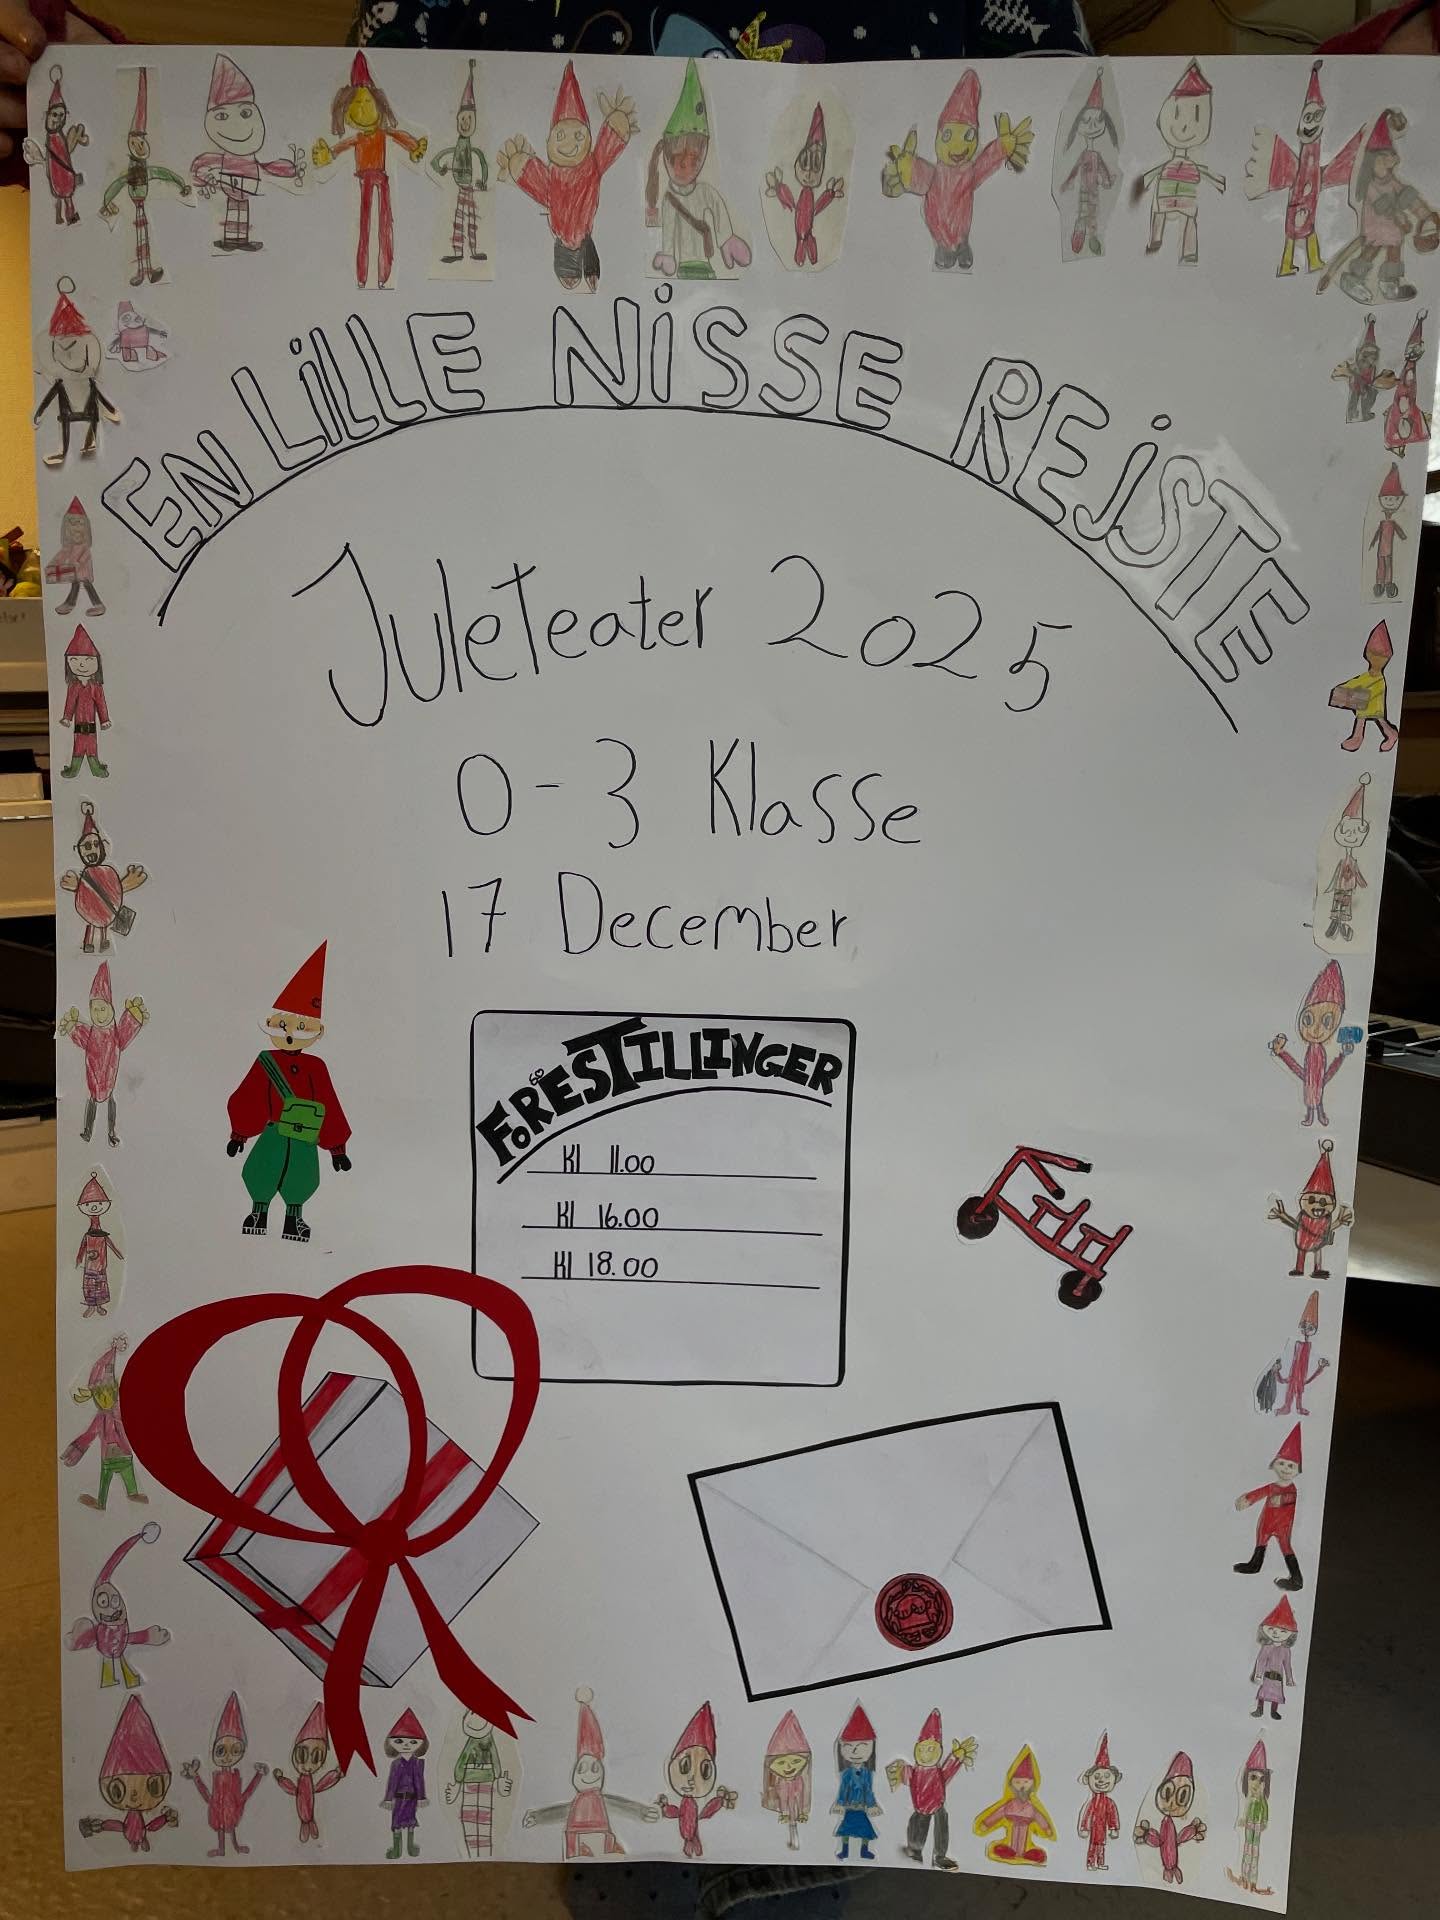 EN LILLE NISSE REJSTE
JuleTeater 2025
0-3 Klasse
17 December
FORESTILLINGER
Kl 11.00
Kl 16.00
Kl 18.00